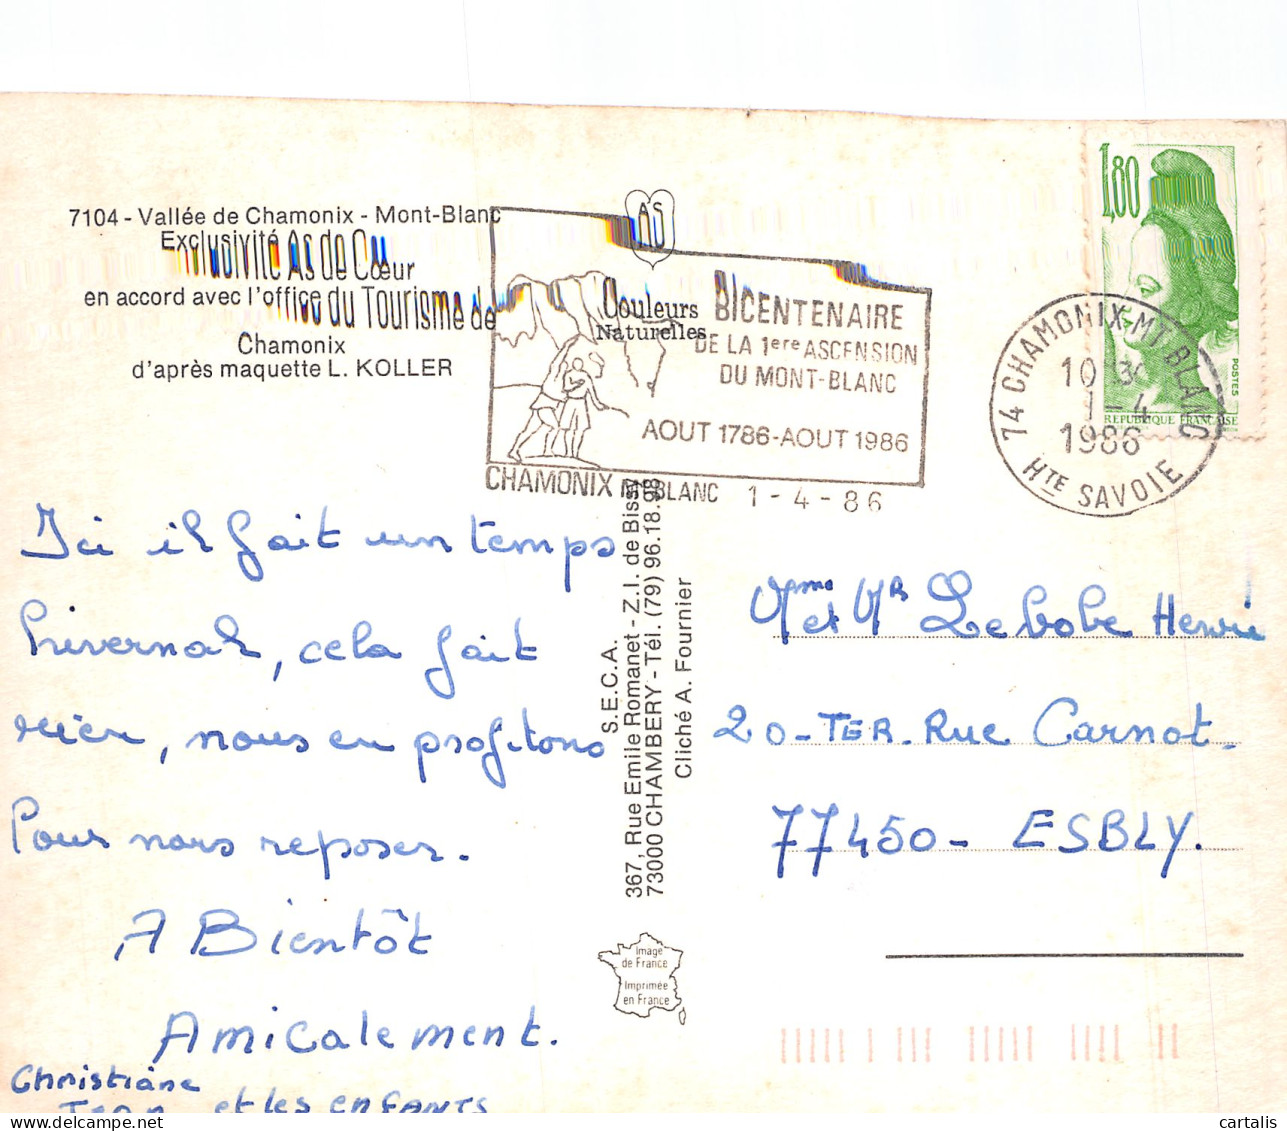 7104 - Vallée de Chamonix - Mont-Blanc
Exclusivité As de Cœur
en accord avec l'office du Tourisme de
Chamonix
d'après maquette L. KOLLER
AS
Couleurs
Naturelles
BICENTENAIRE
DE LA 1ere ASCENSION
DU MONT-BLANC
AOUT 1786-AOUT 1986
CHAMONIX MT BLANC 1-4-86
1,80
POSTES
REPUBLIQUE FRANÇAISE
74 CHAMONIX-MT BLANC
10 H 30
1-4
1986
HTE SAVOIE
Ici il fait un temps
hivernal, cela fait
rien, nous en profitons
Pour nous reposer.
A Bientôt
Amicalement.
Christiane
Jean et les enfants
S.E.C.A.
367, Rue Emile Romanet - Z.I. de Bissy
73000 CHAMBERY - Tél. (79) 96.18.98
Cliché A. Fournier
Mme et Mr Lebobe Henri
20-TER. Rue Carnot.
77450 - ESBLY.
Image
de France
Imprimée
en France
www.delcampe.net
cartalis